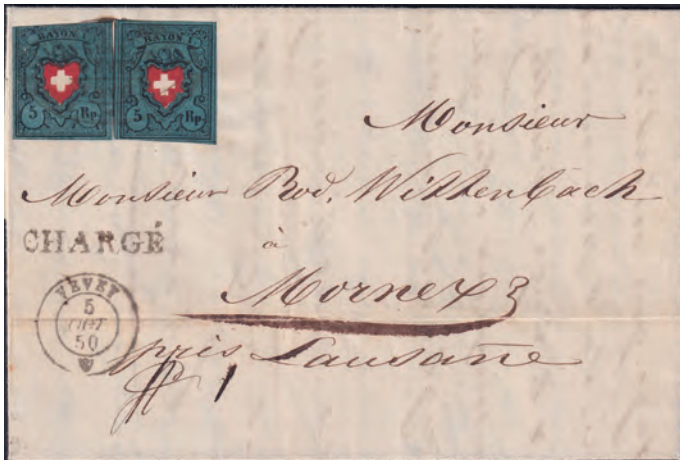 RAYON RAYON
5 Rp 5 Rp
Monsieur
Monsieur Rod. Wittenbach
CHARGÉ
à
Mornex
VEVEY
5
50
près Lausane